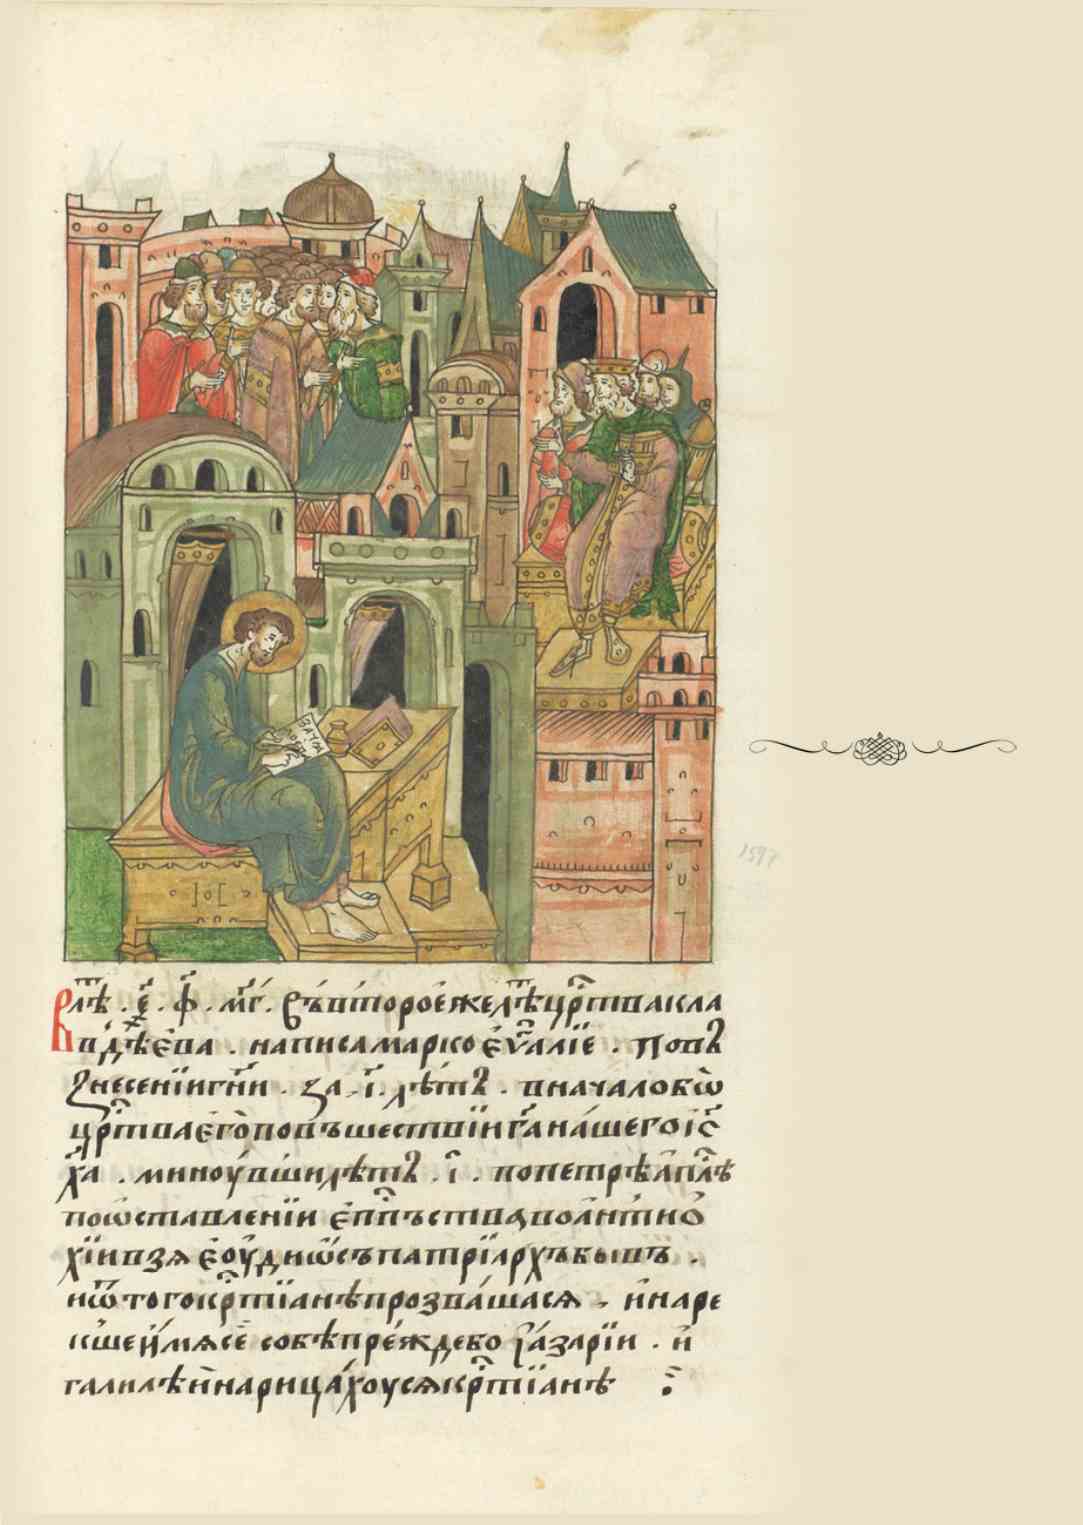 В лⷮѣ . ҂е҃ . ф҃ . м҃г . Въвтороежелⷮѣцрⷭ҇твакла
вдⷤѣева . написамаркоеѵⷢ҇алїе . Повъ
знесенїигⷭ҇ни . за . і҃ . лѣтъ . вначалокѡ
црⷭ҇тваегѡ̀повъшествїигⷭ҇анашегоіс҃
х҃а . миноу́вшилѣтъ . і҃ . попетрѣап҃лѣ
поѡставленїи еппⷭ҇ъствавоантио
хїивзя еоу́диѡсъпатрїархъбывъ .
иѿтогокрⷭ҇тїанѣпрозва́шася . и҆наре
кшеи҆мясе собѣпре́ждебо га́зарїи . и҆
галилѣи҆нарица́хоусякрⷭ҇тїанѣ
1597